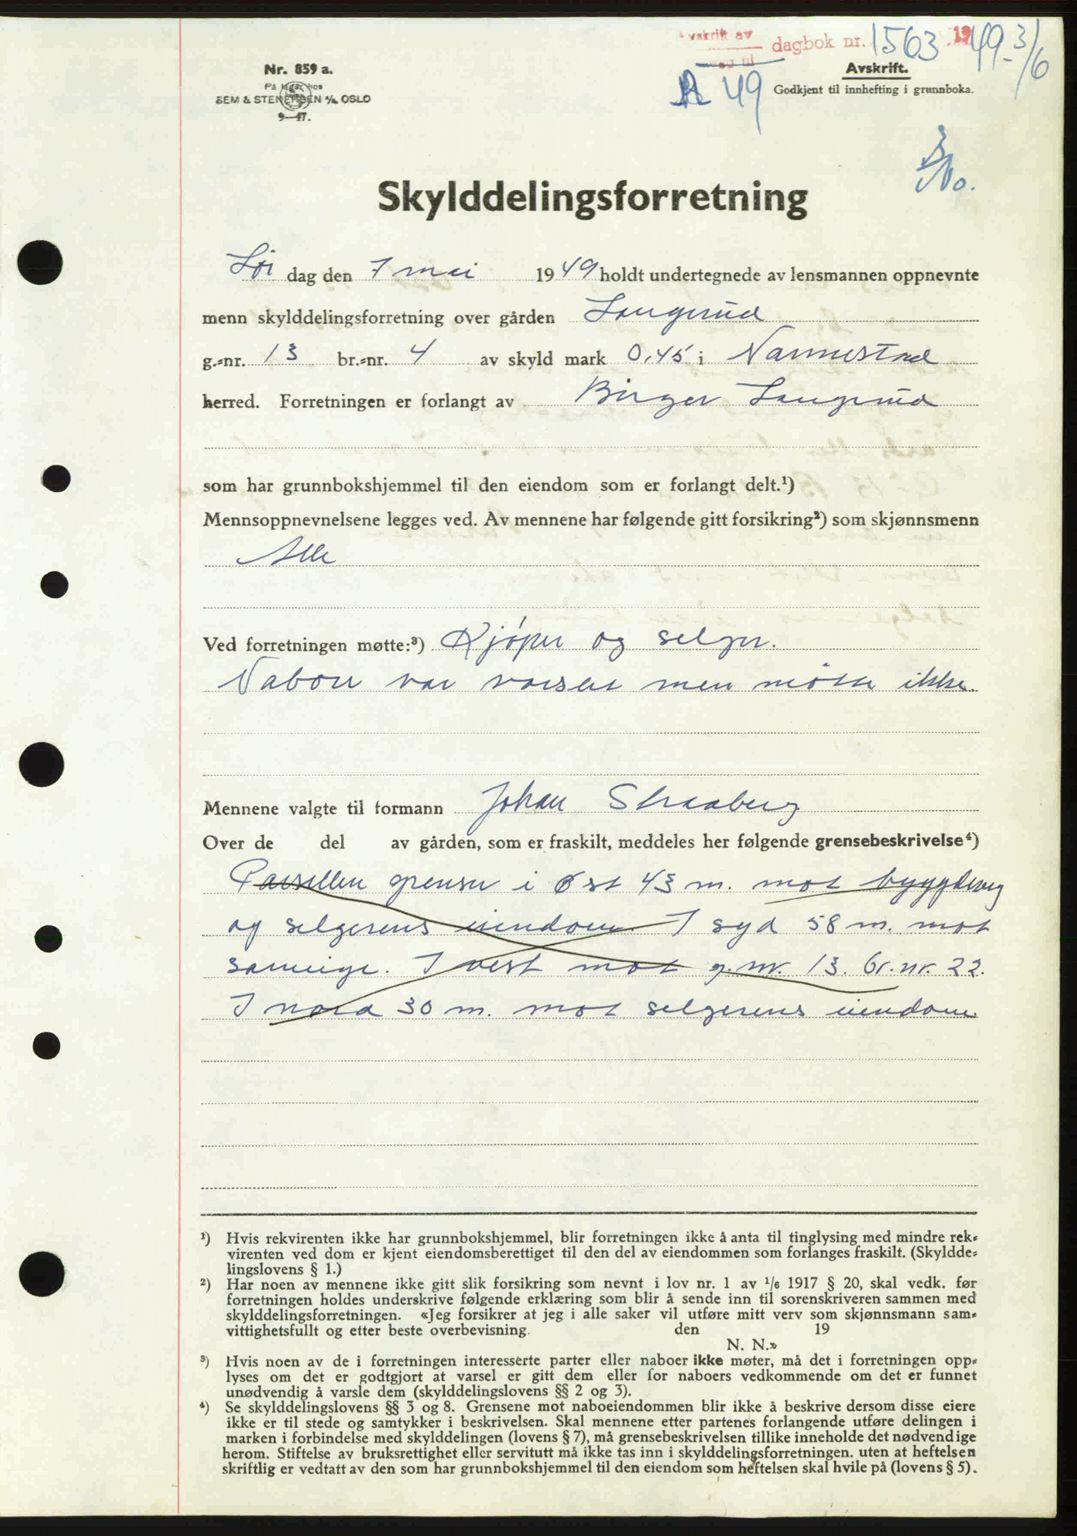 Avskrift av dagbok nr. 1563 1949 3/6
A 49
Avskrift.
Godkjent til innhefting i grunnboka.
Nr. 859 a.
På lager hos
SEM & STENERSEN A/S OSLO
9—47.
No.
Skylddelingsforretning
Lør dag den 7 mai 1949 holdt undertegnede av lensmannen oppnevnte
menn skylddelingsforretning over gården Langerud
g.-nr. 13 br.-nr. 4 av skyld mark 0,45 i Nannestad
herred. Forretningen er forlangt av Birger Langerud
som har grunnbokshjemmel til den eiendom som er forlangt delt.¹)
Mennsoppnevnelsene legges ved. Av mennene har følgende gitt forsikring²) som skjønnsmenn
Alle
Ved forretningen møtte:³) Kjøper og selger.
Naboer var varslet men møtte ikke.
Mennene valgte til formann Johan Straaberg
Over de del av gården, som er fraskilt, meddeles her følgende grensebeskrivelse⁴)
Parsellen grenser i øst 43 m. mot byggdeveg
og selgerens eiendom. I syd 58 m. mot
samme. I vest mot g.nr. 13. br.nr. 22.
I nord 30 m. mot selgerens eiendom
¹) Hvis rekvirenten ikke har grunnbokshjemmel, blir forretningen ikke å anta til tinglysing med mindre rek-
virenten ved dom er kjent eiendomsberettiget til den del av eiendommen som forlanges fraskilt. (Skyldde-
lingslovens § 1.)
²) Har noen av mennene ikke gitt slik forsikring som nevnt i lov nr. 1 av ¹/₆ 1917 § 20, skal vedk. før
forretningen holdes underskrive følgende erklæring som blir å sende inn til sorenskriveren sammen med
skylddelingsforretningen. «Jeg forsikrer at jeg i alle saker vil utføre mitt verv som skjønnsmann sam-
vittighetsfullt og etter beste overbevisning. den 19
N. N.»
³) Hvis noen av de i forretningen interesserte parter eller naboer ikke møter, må det i forretningen opp-
lyses om det er godtgjort at varsel er gitt dem eller for naboers vedkommende om det er funnet
unødvendig å varsle dem (skylddelingslovens §§ 2 og 3).
⁴) Se skylddelingslovens §§ 3 og 8. Grensene mot naboeiendommen blir ikke å beskrive dersom disse eiere
ikke er til stede og samtykker i beskrivelsen. Skal mennene etter partenes forlangende utføre delingen i
marken i forbindelse med skylddelingen (lovens § 7), må grensebeskrivelsen tillike inneholde det nødvendige
herom. Stiftelse av bruksrettighet eller servitutt må ikke tas inn i skylddelingsforretningen. uten at heftelsen
skriftlig er vedtatt av den som har grunnbokshjemmel til den eiendom som heftelsen skal hvile på (lovens § 5).